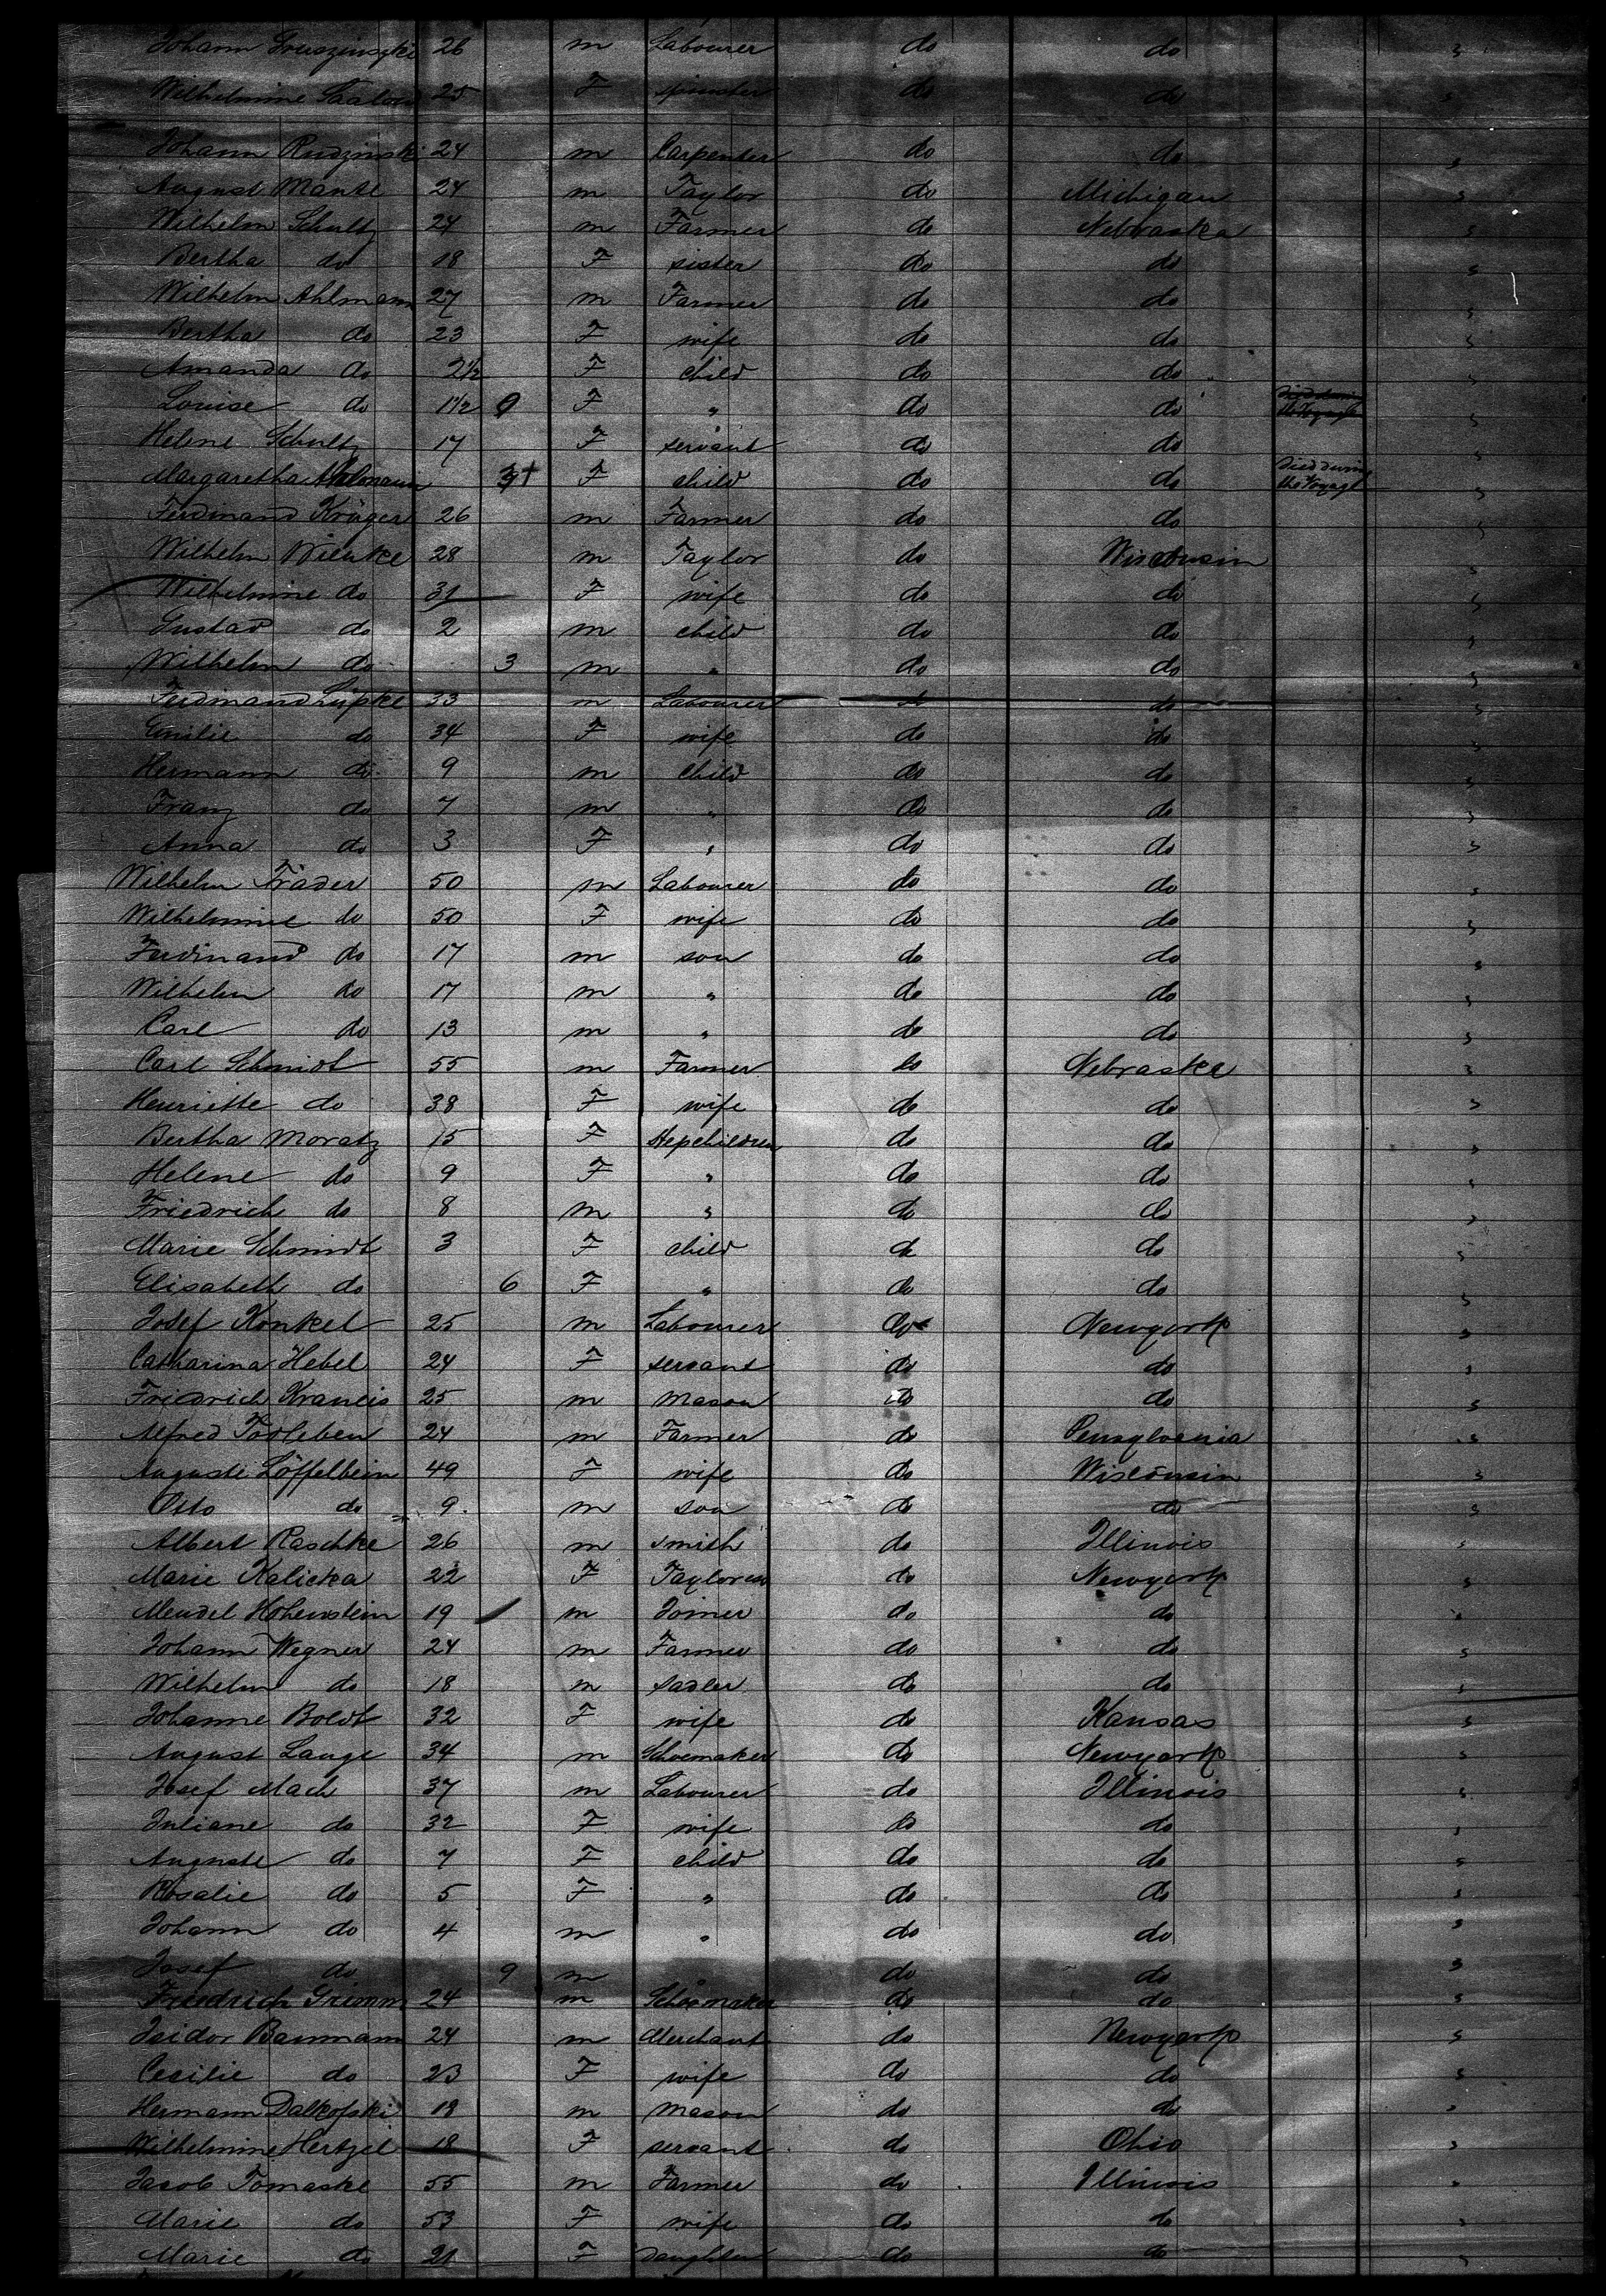 Johann Gruszinszki 26 m Labourer do do s
Wilhelmine Saalow 25 F spinster do do s
Johann Rudzinski 24 m Carpenter do do s
August Mantl 24 m Taylor do Michigan s
Wilhelm Schultz 24 m Farmer do Nebraska s
Bertha do 18 F sister do do s
Wilhelm Ahlmann 27 m Farmer do do s
Bertha do 23 F wife do do s
Amanda do 2 1/2 F child do do s
Louise do 1 1/2 0 F " do do Died during the Voyage s
Helene Schultz 17 F servant do do s
Margaretha Ahlmann 3 + F child do do Died during the Voyage s
Ferdinand Krüger 26 m Farmer do do s
Wilhelm Wienke 28 m Taylor do Wisconsin s
Wilhelmine do 31 F wife do do s
Gustav do 2 m child do do s
Wilhelm do 3 m " do do s
Ferdinand Lüpke 33 m Labourer do do s
Emilie do 34 F wife do do s
Hermann do 9 m child do do s
Franz do 7 m " do do s
Anna do 3 F " do do s
Wilhelm Träder 50 m Labourer do do s
Wilhelmine do 50 F wife do do s
Ferdinand do 17 m son do do s
Wilhelm do 17 m " do do s
Carl do 13 m " do do s
Carl Schmidt 55 m Farmer do Nebraska s
Henriette do 38 F wife do do s
Bertha Moratz 15 F stepchildren do do s
Helene do 9 F " do do s
Friedrich do 8 m " do do s
Marie Schmidt 3 F child do do s
Elisabeth do 6 F " do do s
Josef Konkel 25 m Labourer do Newyork s
Catharina Hebel 24 F servant do do s
Friedrich Krancis 25 m Mason do do s
Alfred Torleben 24 m Farmer do Pensylvania s
Auguste Löffelbein 49 F wife do Wisconsin s
Otto do 9 m son do do s
Albert Raschke 26 m smith do Illinois s
Marie Kalicka 22 F Tayloress do Newyork s
Mendel Hohenstein 19 m Joiner do do s
Johann Wegner 24 m Farmer do do s
Wilhelm do 18 m sadler do do s
Johanne Boldt 32 F wife do Kansas s
August Lange 34 m Schoemaker do Newyork s
Josef Mach 37 m Labourer do Illinois s
Juliane do 32 F wife do do s
Auguste do 7 F child do do s
Rosalie do 5 F " do do s
Johann do 4 m " do do s
Josef do 9 m do do s
Friedrich Grimm 24 m Schoemaker do do s
Isidor Baumann 24 m Merchant do Newyork s
Cecilie do 23 F wife do do s
Hermann Dalkofski 18 m Mason do do s
Wilhelmine Hertzel 18 F servant do Ohio s
Jacob Tomaske 55 m Farmer do Illinois s
Marie do 53 F wife do do s
Marie do 21 F daughter do do s